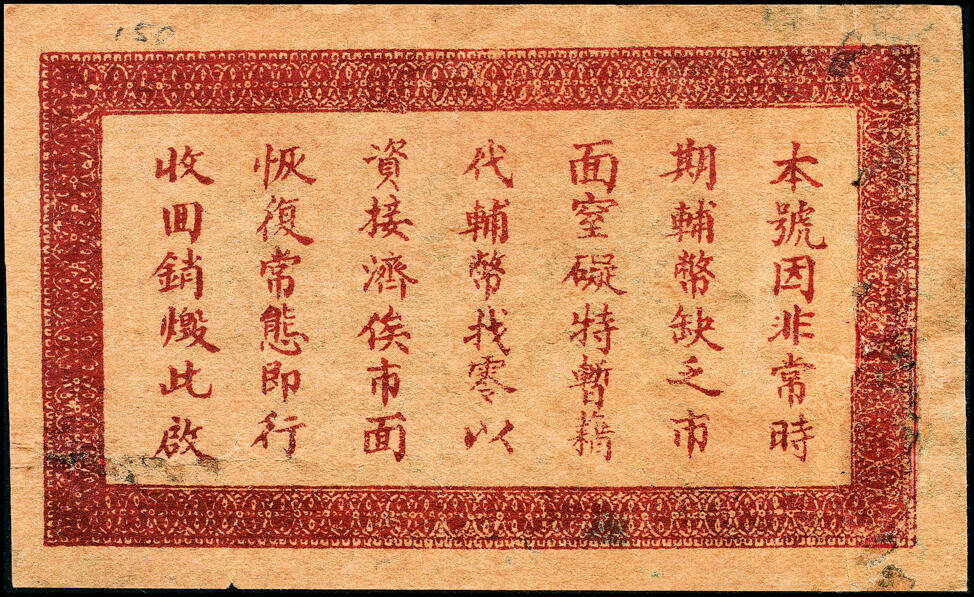 本號因非常時
期輔幣缺乏市
面窒礙特暫藉
代輔幣找零以
資接濟俟市面
恢復常態即行
收回銷燬此啟
150